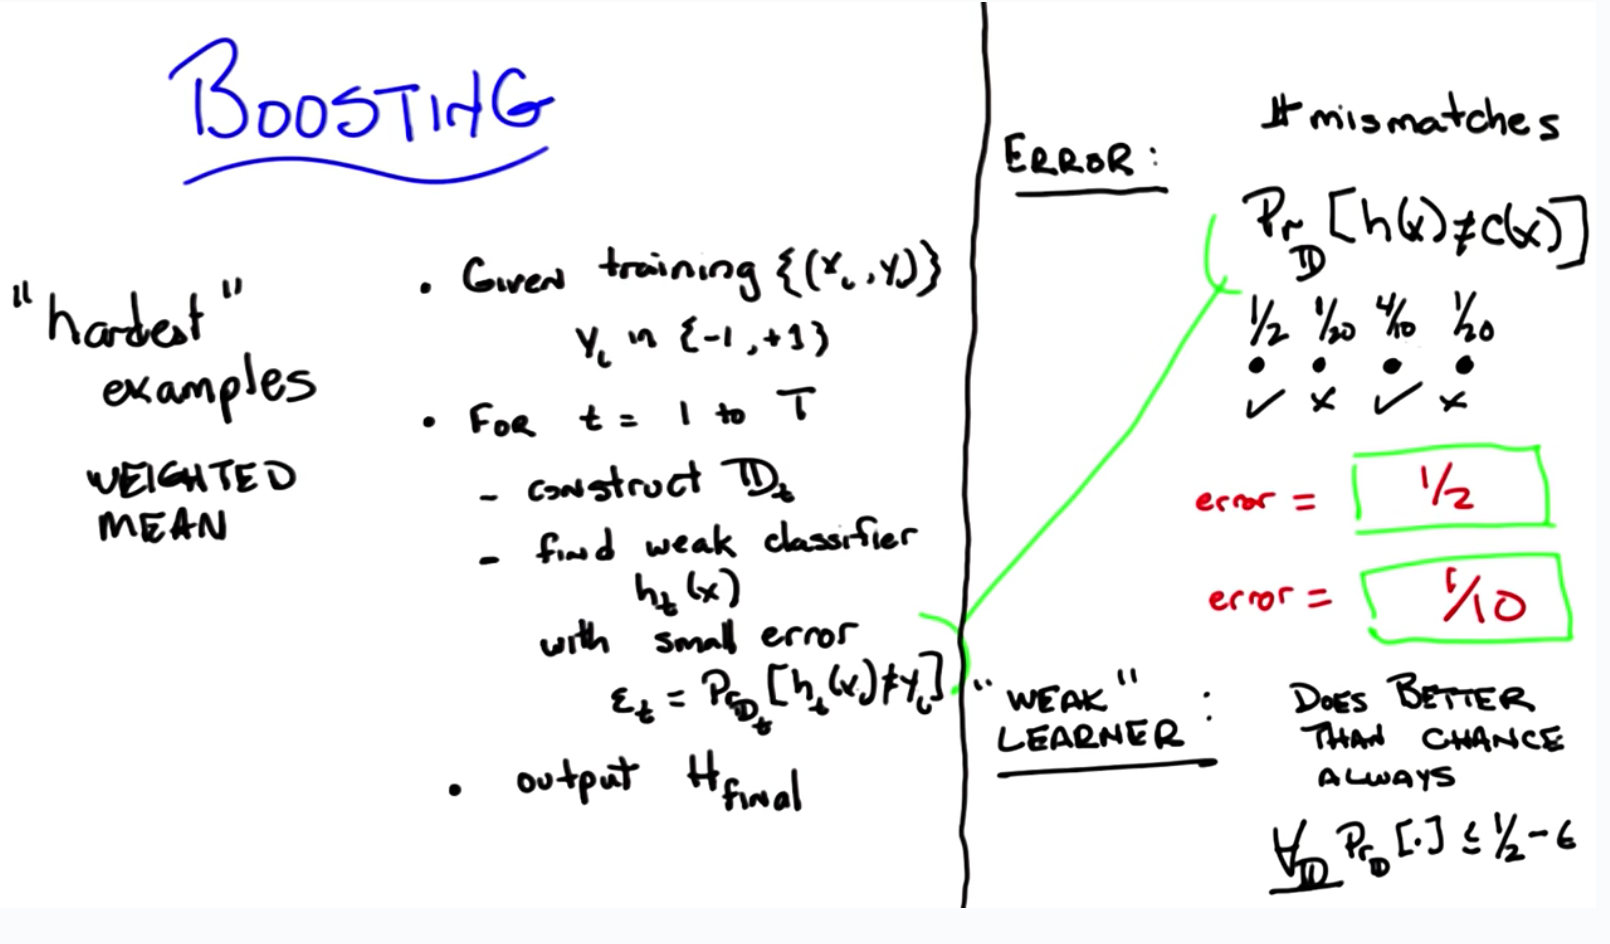 BOOSTING
"hardest"
examples
WEIGHTED
MEAN
• Given training {(xᵢ, yᵢ)}
yᵢ in {-1, +1}
• FOR t = 1 to T
- construct 𝔻ₜ
- find weak classifier
hₜ(x)
with small error
εₜ = Pr_𝔻ₜ [hₜ(xᵢ)≠yᵢ]
• output H_final
ERROR:
# mismatches
Pr_𝔻 [h(x)≠c(x)]
1/2 1/20 4/10 1/20
✓ x ✓ x
error = 1/2
error = 1/10
"WEAK"
LEARNER :
DOES BETTER
THAN CHANCE
ALWAYS
∀_𝔻 Pr_𝔻 [·] ≤ 1/2 - ϵ